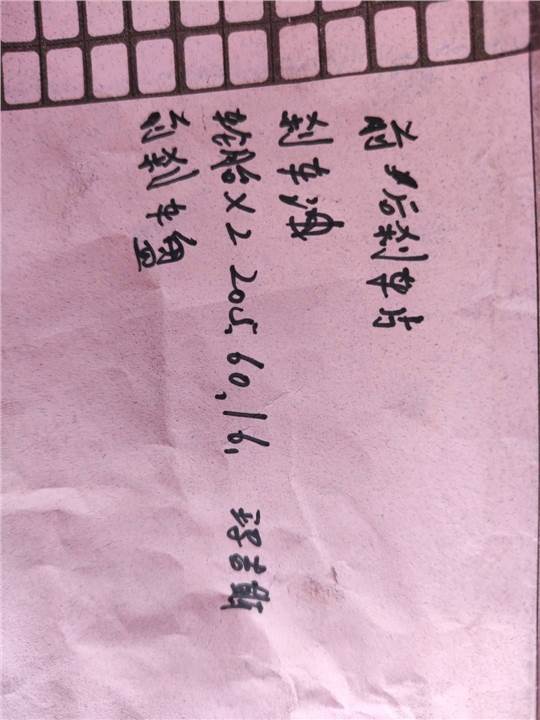 前、后刹车片
刹车油
轮胎×2 205,60,16,
前刹车盘